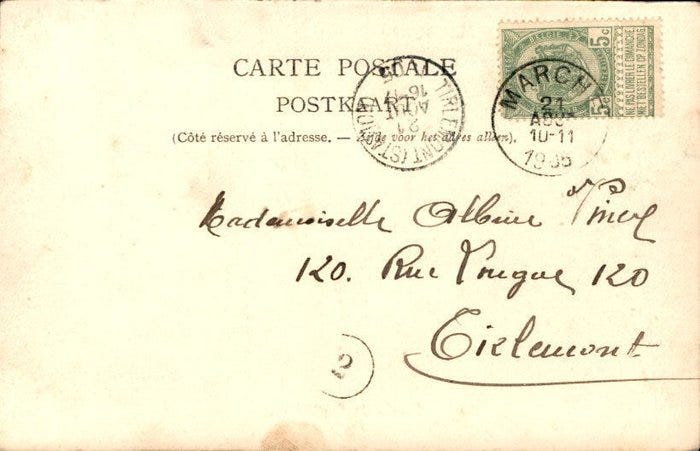 BELGIË
5c
5c
NE PAS LIVRER LE DIMANCHE
NIET BESTELLEN OP ZONDAG
MARCH
21
AOUT
10-11
1905
TIRLEMONT (STATION)
21
AOUT
16-17
CARTE POSTALE
POSTKAART
(Côté réservé à l'adresse. — Zijde voor het adres alleen).
Mademoiselle Albine
120. Rue 120
Tirlemont
2